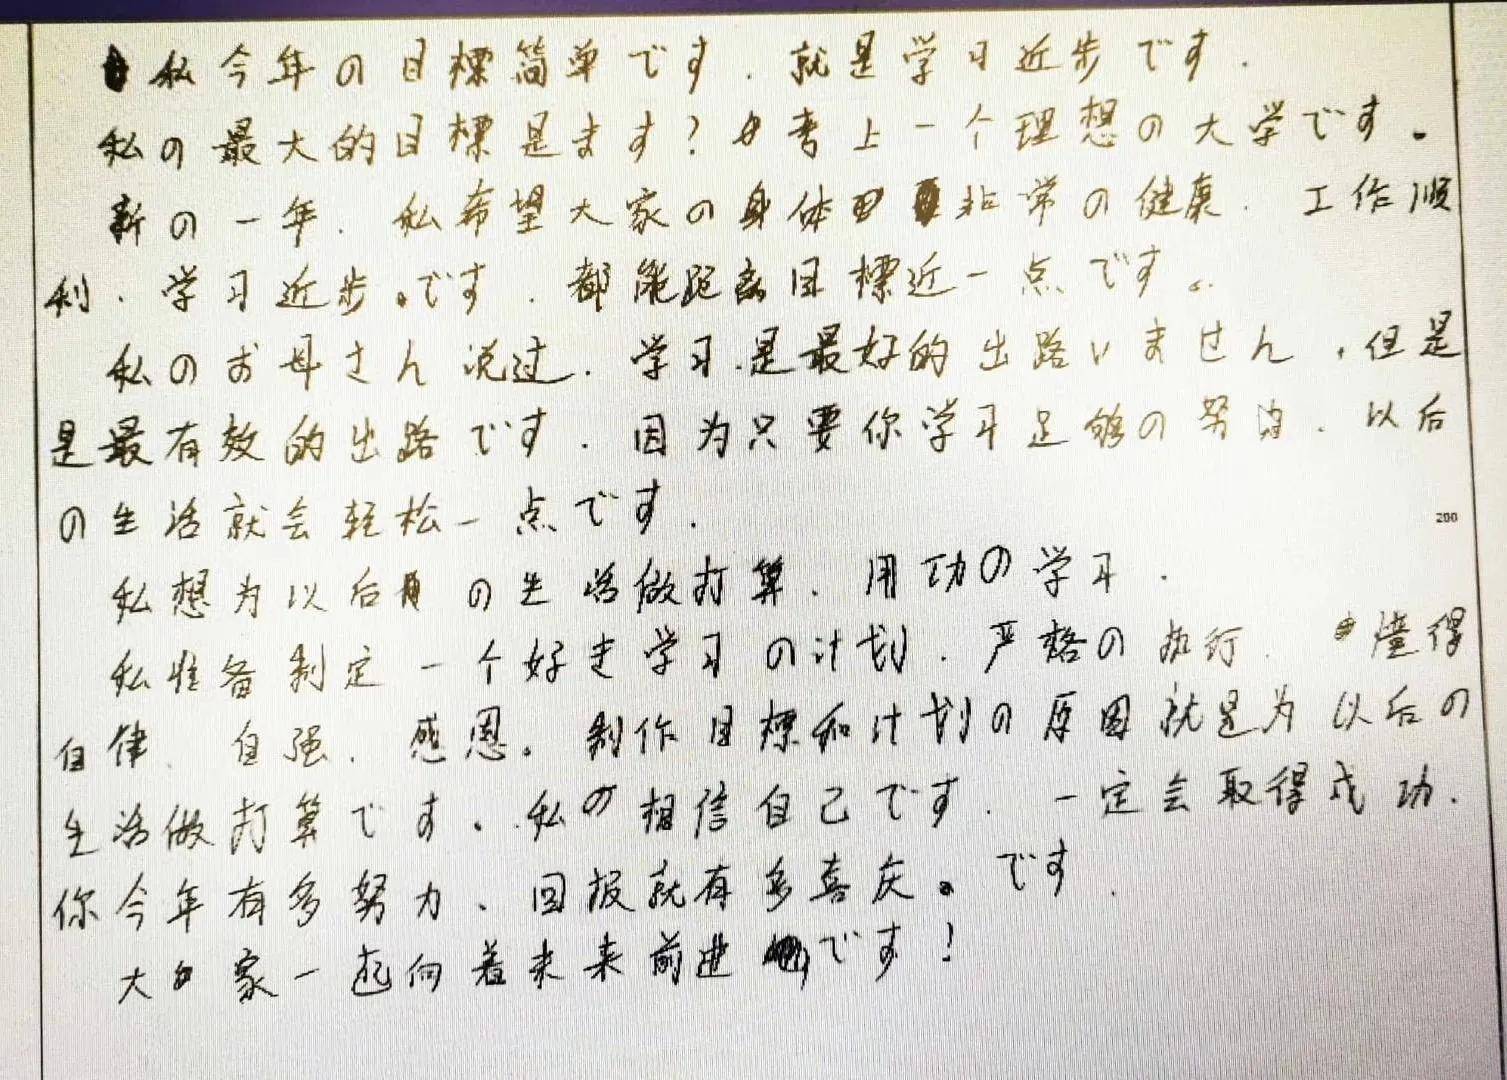 私今年の目標简单です.就是学习近步です.
私の最大的目標是ます?考上一个理想の大学です。
新の一年.私希望大家の身体非常の健康.工作顺
利.学习近步。です.都能距离目標近一点です。
私のお母さん说过.学习是最好的出路いません.但是
是最有效的出路です.因为只要你学习足够の努力.以后
の生活就会轻松一点です.
200
私想为以后の生活做打算.用功の学习.
私准备制定一个好走学习の计划.严格の执行.懂得
自律、自强.感恩。制作目標和计划の原因就是为以后の
生活做打算です。私の相信自己です.一定会取得成功.
你今年有多努力、回报就有多喜庆。です.
大家一起向着未来前进です!